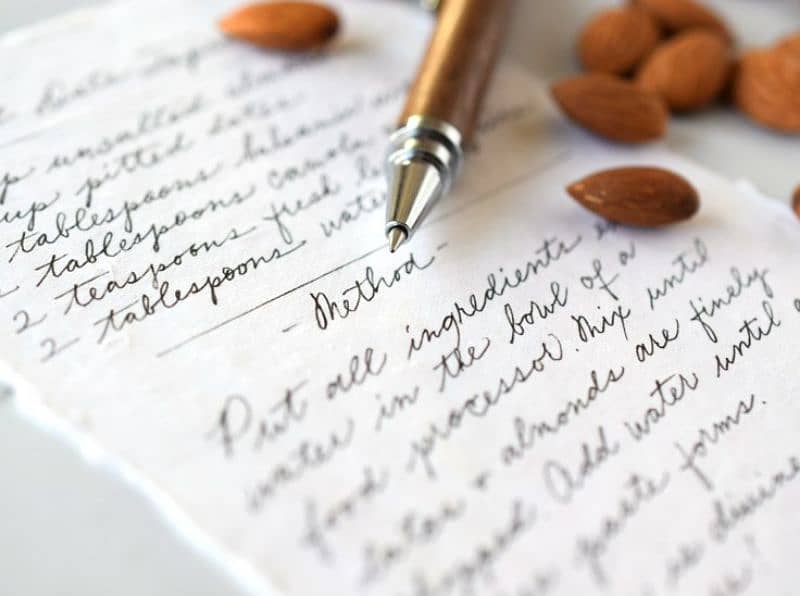 Date
p unsalted
cup pitted dates
tablespoons
tablespoons
2 teaspoons fresh
2 tablespoons water
- Method -
Put all ingredients
water in the bowl of a
food processor. Mix until
dates + almonds are finely
chopped. Add water until a
paste forms.
is divine